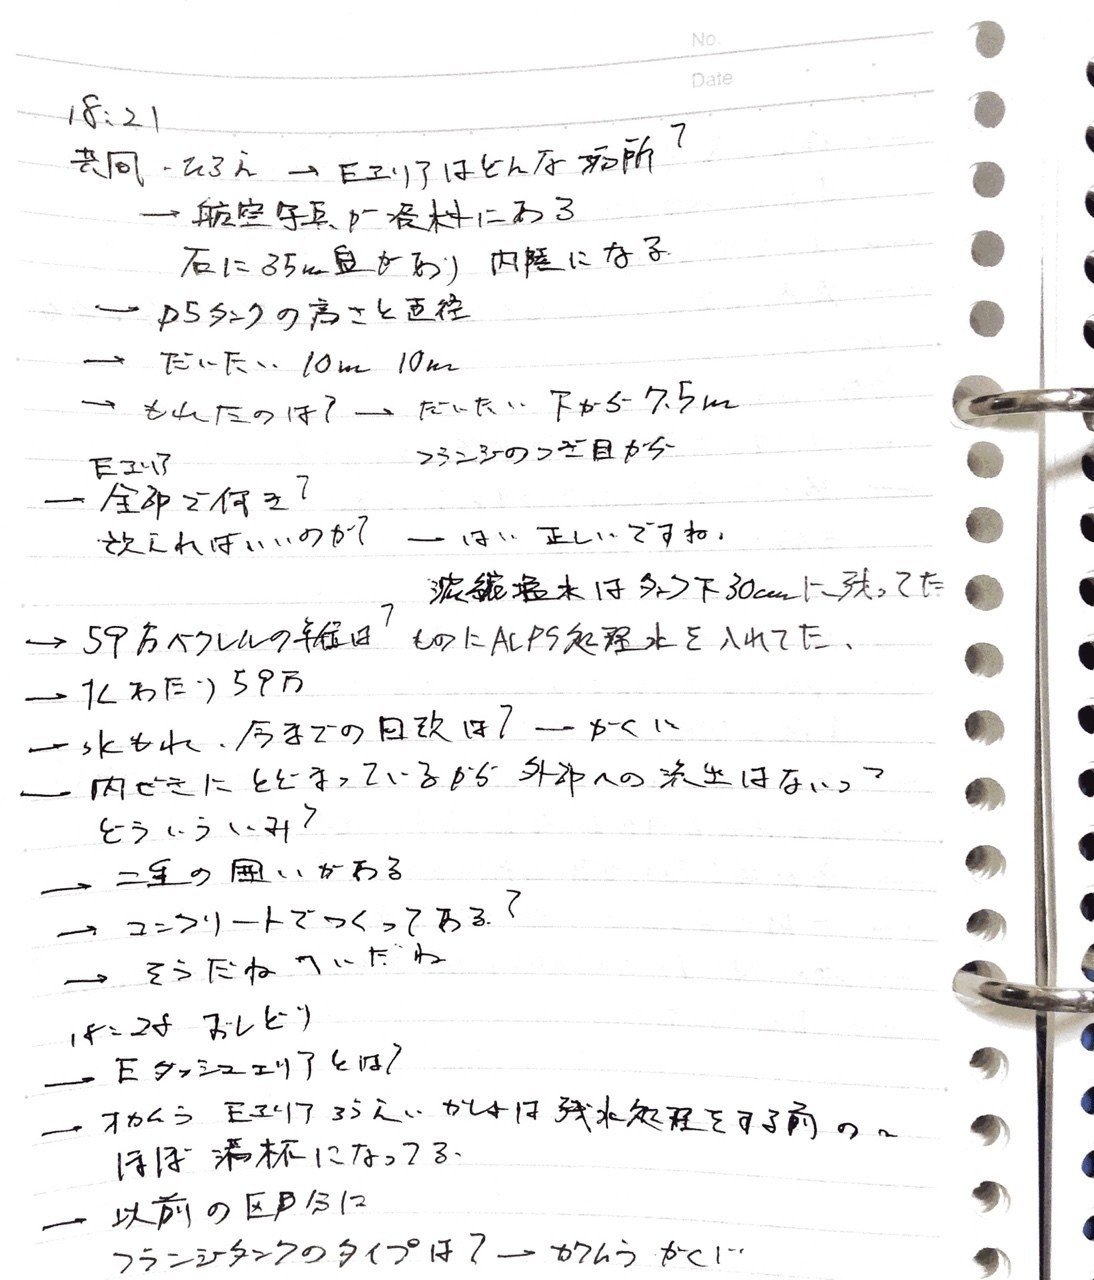 No.
Date
18:21
共同・ひろえ → Eエリアはどんな場所?
→ 航空写真が資料にある
右に35m盤があり 内陸になる
→ D5タンクの高さと直径
→ だいたい 10m 10m
→ もれたのは? → だいたい 下から7.5m
フランジのつぎ目から
Eエリア
→ 全部で何き?
数えればいいのか? → はい 正しいですね.
濃縮塩水はタンク下30cmに残ってた
→ 59万ベクレルの単位は? ものにALPS処理水を入れてた.
→ 1Lあたり59万
→ 水もれ.今までの回数は? → かくに
→ 内ぜきにとどまっているから 外部への流出はないって
どういういみ?
→ 二重の囲いがある
→ コンクリートでつくってある?
→ そうだね へいだね
18:28 おしどり
→ Eダッシュエリアとは?
→ オカムラ Eエリア ろうえい かしょは 残水処理をする前の
ほぼ 満杯になってる.
→ 以前の区分に
フランジタンクのタイプは? → オカムラ かくに